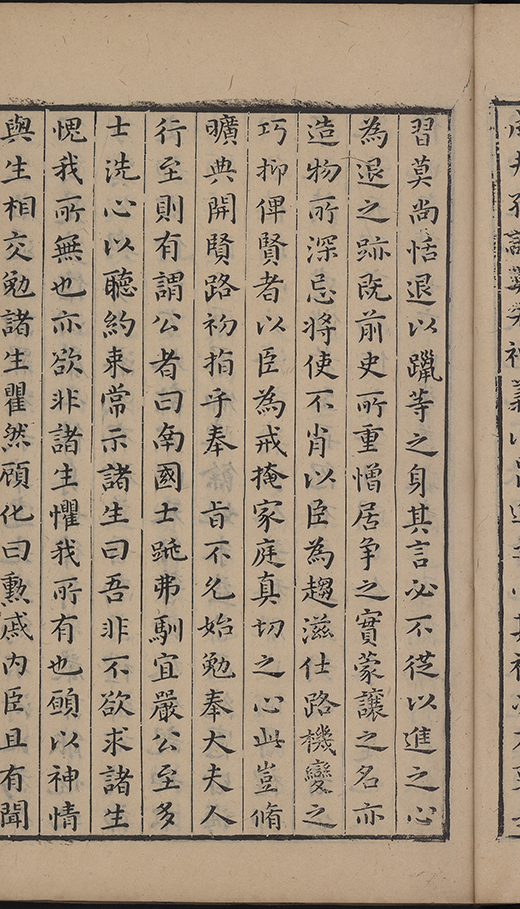 習莫尚恬退以躐等之身其言必不從以進之心
為退之跡既前史所重憎居争之實蒙讓之名亦
造物所深忌將使不肖以臣為趨滋仕路機變之
巧抑俾賢者以臣為戒掩家庭真切之心此豈脩
曠典開賢路初指乎奉　旨不允始勉奉大夫人
行至則有謂公者曰南國士跅弗馴宜嚴公至多
士洗心以聽約束常示諸生曰吾非不欲求諸生
愧我所無也亦欲非諸生懼我所有也願以神情
與生相交勉諸生瞿然顧化曰勲戚内臣且有聞